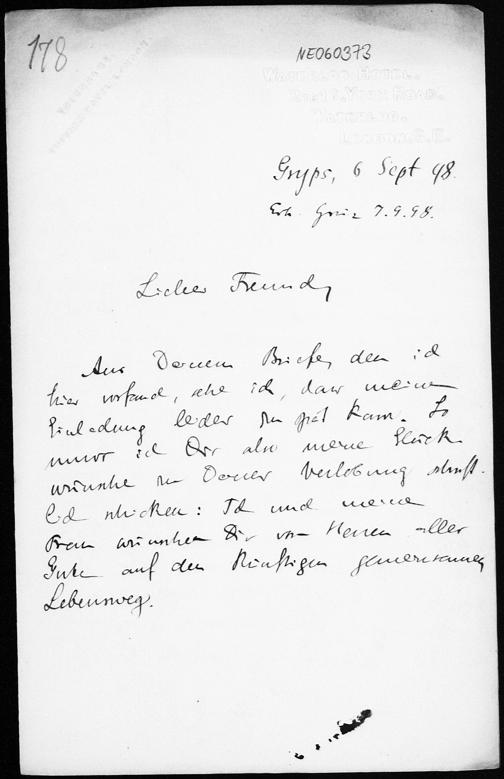 178
NE060373
WATERLOO HOTEL.
YORK ROAD.
WATERLOO.
LONDON.S.E.
Gryps, 6 Sept 98.
Erh. 7.9.98.
Lieber Freund,
Aus Deinem Briefe, den ich
hier vorfand, sehe ich, dass meine
Einladung leider zu spät kam. So
muss ich Dir also meine Glück
wünsche zu Deiner Verlobung schrift-
lich schicken: Ich und meine
Frau wünschen Dir von Herzen alles
Gute auf den künftigen gemeinsamen
Lebensweg.